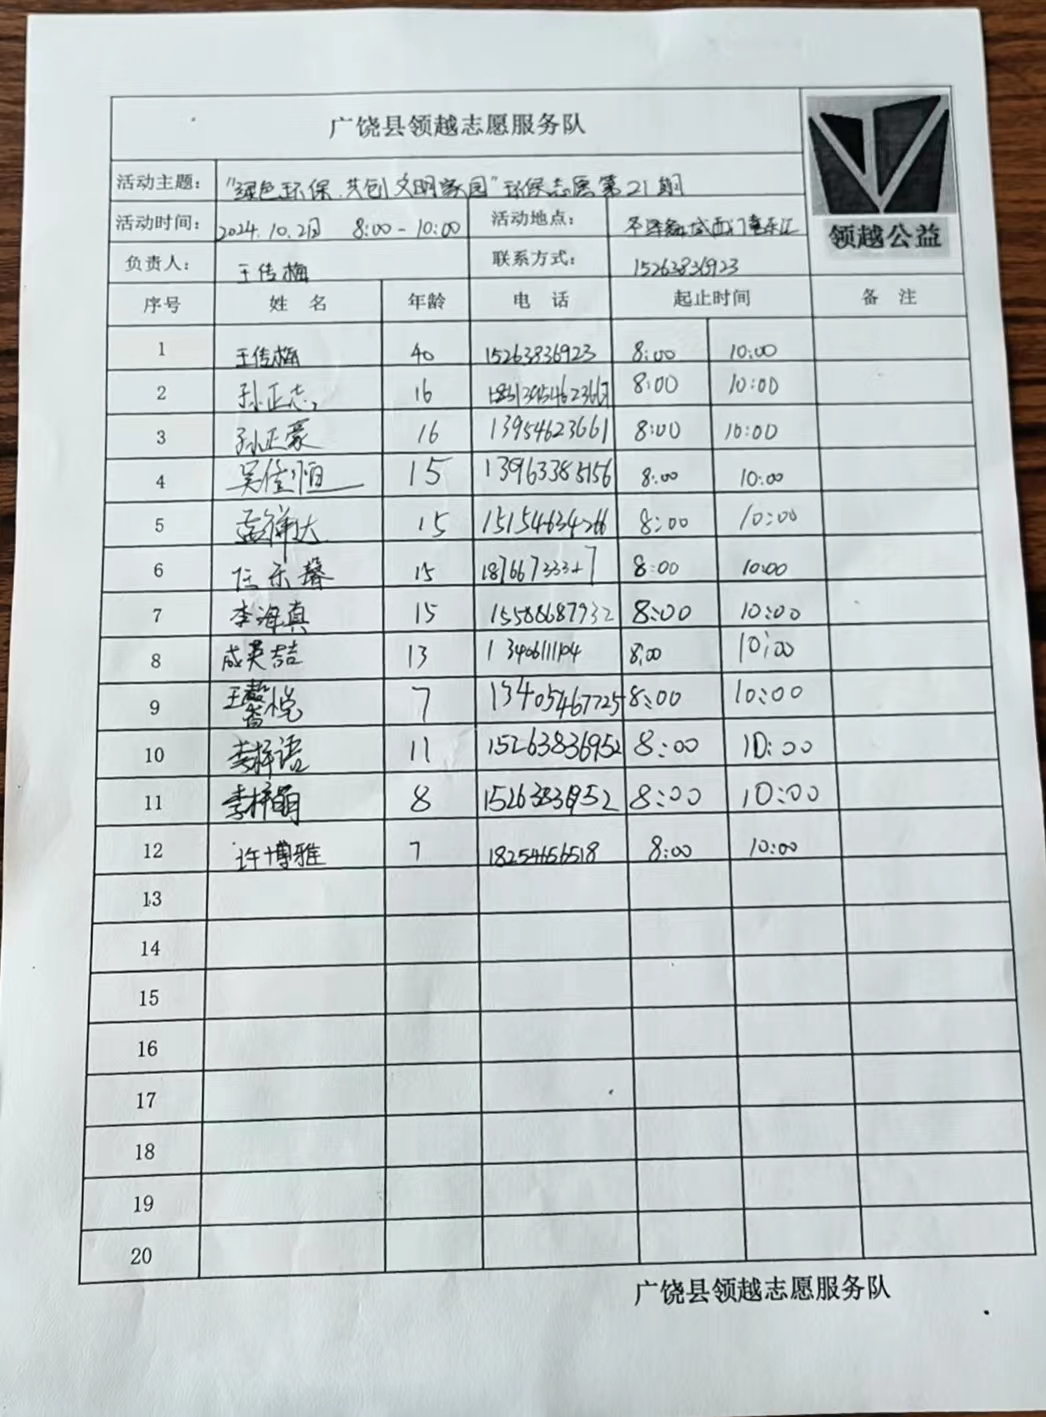 广饶县领越志愿服务队
领越公益
活动主题: "绿色环保.共创文明家园"环保志愿第21期
活动时间: 2024.10.2日 8:00-10:00 活动地点:
负责人: 王传梅 联系方式: 15263836923
序号 姓 名 年龄 电 话 起止时间 备 注
1 王传梅 40 15263836923 8:00 10:00
2 孙正志 16 8:00 10:00
3 孙正豪 16 13954623661 8:00 10:00
4 吴佳恒 15 13963385156 8:00 10:00
5 孟祥达 15 15154634266 8:00 10:00
6 15 8:00 10:00
7 李海真 15 15588687932 8:00 10:00
8 成英喆 13 13406111104 8:00 10:00
9 王馨悦 7 13405467725 8:00 10:00
10 李梓语 11 15263836952 8:00 10:00
11 李梓萌 8 15263836952 8:00 10:00
12 许博雅 7 18254656518 8:00 10:00
13
14
15
16
17
18
19
20
广饶县领越志愿服务队